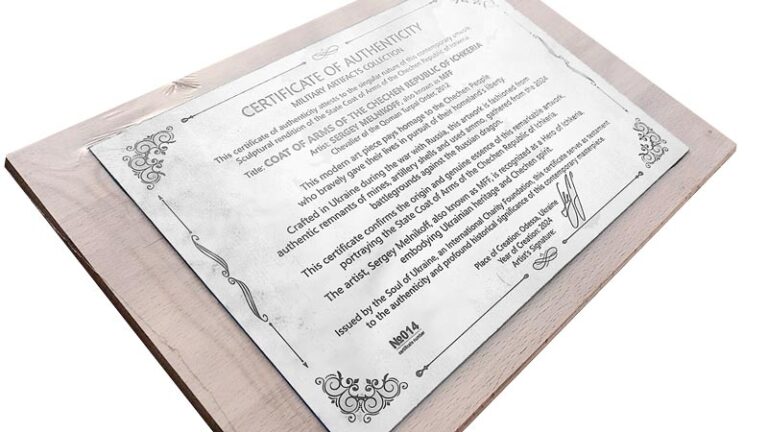 CERTIFICATE OF AUTHENTICITY
MILITARY ARTIFACTS COLLECTION
This certificate of authenticity attests to the singular nature of this contemporary artwork
Sculptural rendition of the State Coat of Arms of the Chechen Republic of Ichkeria
Title: COAT OF ARMS OF THE CHECHEN REPUBLIC OF ICHKERIA
Artist: SERGEY MELNIKOFF, also known as MFF
Chevalier of the Qoman Royal Order, 2012
This modern art piece pays homage to the Chechen People
who bravely gave their lives in pursuit of their homeland's liberty
Crafted in Ukraine during the war with Russia, this artwork is fashioned from
authentic remnants of mines, artillery shells and used ammo, gathered from the 2024
battlegrounds against the Russian dragon.
This certificate confirms the origin and genuine essence of this remarkable artwork,
portraying the State Coat of Arms of the Chechen Republic of Ichkeria.
The artist, Sergey Melnikoff, also known as MFF, is recognized as a hero of Ichkeria,
embodying Ukrainian heritage and Chechen spirit.
Issued by the Soul of Ukraine, an International Charity Foundation, this certificate serves as testament
to the authenticity and profound historical significance of this contemporary masterpiece
Place of Creation: Odessa, Ukraine
Year of Creation: 2024
Artist's Signature:
№014
certificate number